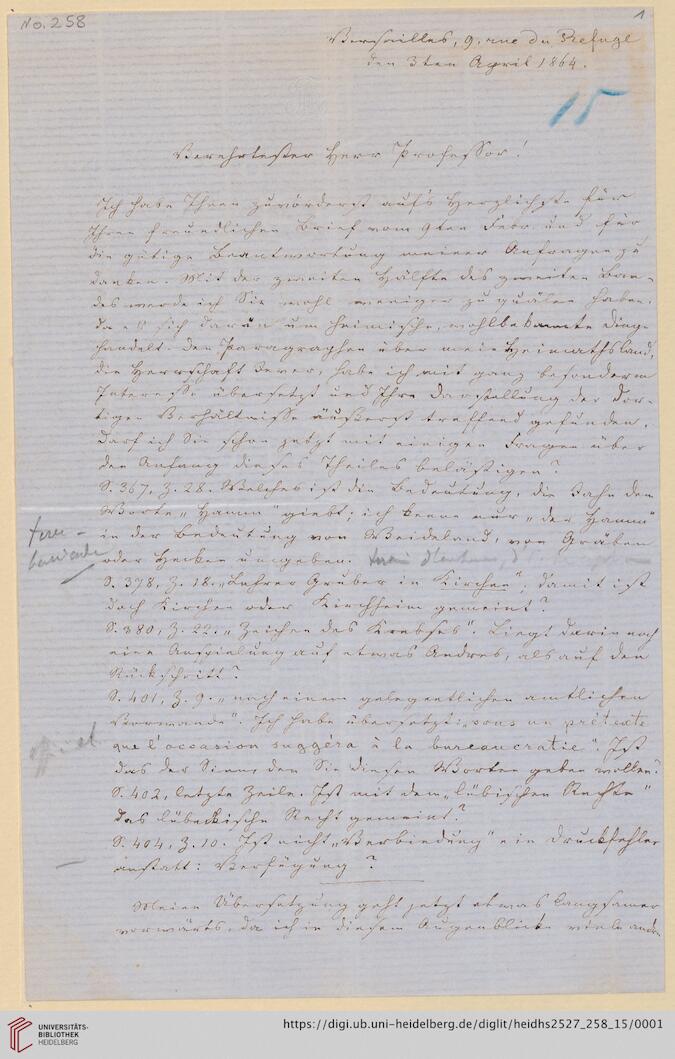 No. 258
1
Versailles, 9, rue du Refuge
den 3ten April 1864.
15
Verehrtester Herr Professor!
Ich habe Ihnen zuvörderst auf's Herzlichste für
Ihren freundlichen Brief vom 9ten Febr. und für
die gütige Beantwortung meiner Anfragen zu
danken. Mit der zweiten Hälfte des zweiten Ban-
des werde ich Sie wohl weniger zu quälen haben,
da es sich darin um heimische, wohlbekannte Dinge
handelt. Den Paragraphen über mein Heimathsland,
die Herrschaft Jever, habe ich mit ganz besonderm
Interesse übersetzt und Ihre Darstellung der dor-
tigen Verhältnisse äußerst treffend gefunden.
Darf ich Sie schon jetzt mit einigen Fragen über
den Anfang dieses Theiles belästigen?
S. 367, Z. 28. Welches ist die Bedeutung, die Jahn dem
Worte „Hamm" giebt; ich kenne nur „der Hamm"
in der Bedeutung von Weideland, von Gräben
oder Hecken umgeben.
S. 378, Z. 18. „Lehrer Gruber in Kirchen"; damit ist
doch Kirchen oder Kirchheim gemeint?
S. 380, Z. 22. „Zeichen des Krebses". Liegt darin noch
eine Anspielung auf etwas Andres, als auf den
Rückschritt?
S. 401, Z. 9. „nach einem gelegentlichen amtlichen
Vorwande". Ich habe übersetzt: „sous un prétexte
que l'occasion suggéra à la bureaucratie". Ist
das der Sinn, den Sie diesen Worten geben wollen?
officiel
S. 402, letzte Zeile. Ist mit dem „lübischen Rechte"
das lübeckische Recht gemeint?
S. 404, Z. 10. Ist nicht „Verbindung" ein Druckfehler
anstatt: Verfügung?
Meine Übersetzung geht jetzt etwas langsamer
vorwärts, da ich in diesem Augenblicke viele andre
UNIVERSITÄTS-
BIBLIOTHEK
HEIDELBERG
https://digi.ub.uni-heidelberg.de/diglit/heidhs2527_258_15/0001